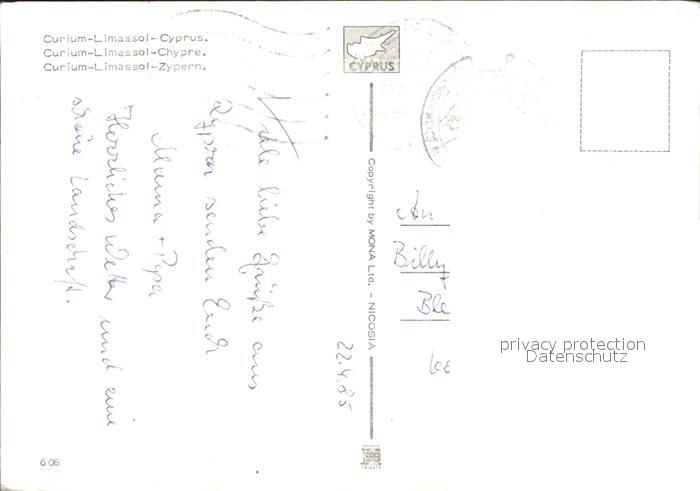 Curium-Limassol-Cyprus.
Curium-Limassol-Chypre.
Curium-Limassol-Zypern.
CYPRUS
Viele liebe Grüße aus
Zypern senden Euch
Mama + Papa
Herrliches Wetter und eine
schöne Landschaft.
22.4.85
Copyright by MONA Ltd. - NICOSIA
An
Billy +
Ble
privacy protection
Datenschutz
6 06
TRIESTE